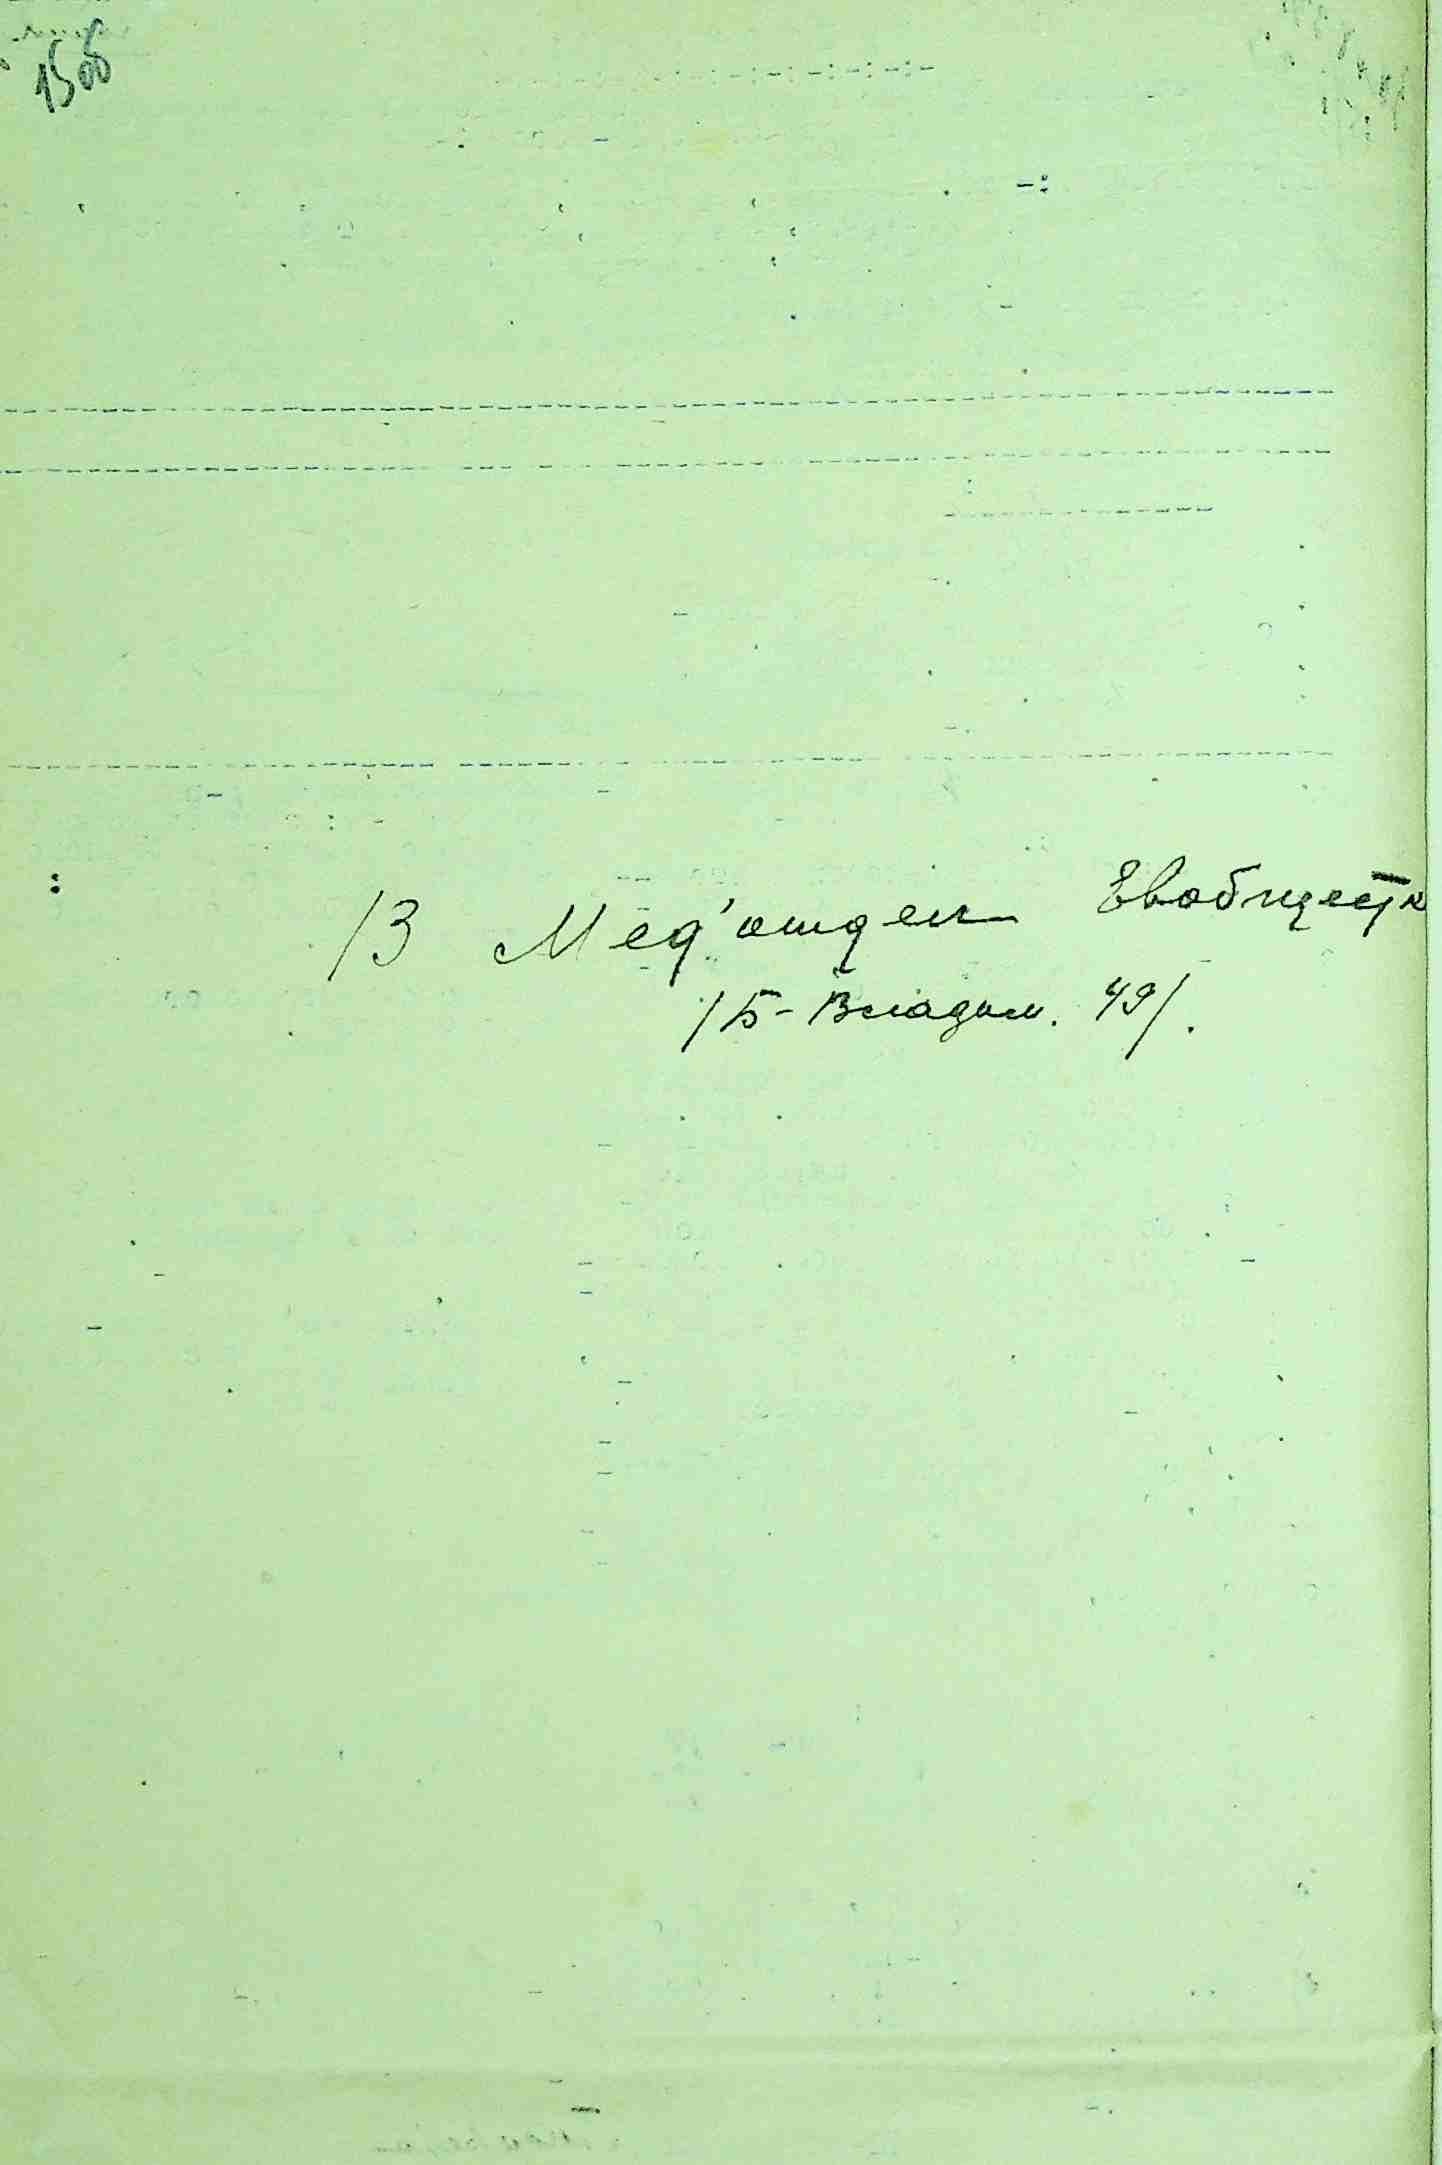 150б
В Мед'отдел Евобщестк
/Б-Владим. 49/.